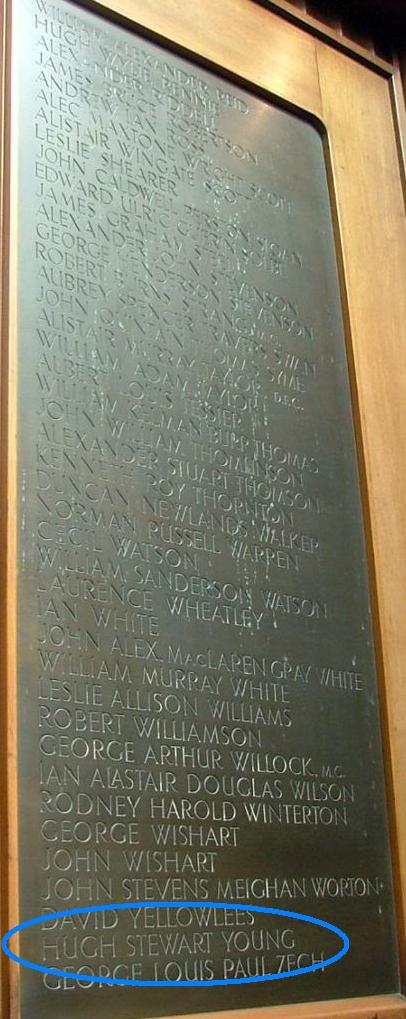 WILLIAM ALEXANDER REID
HUGH WYLIE RENNIE
ALEXANDER RIDDELL
JAMES BRUCE
ANDREW IAN ROBERTSON
ALEC MAXTONE ROSS
ALISTAIR WINGATE WRIGHT SCOTT
LESLIE SHEARER
JOHN CALDWELL SLOAN
EDWARD ULRIC
JAMES GRAHAM
ALEXANDER JOHN STEVENSON
GEORGE HENDERSON STEVENSON
ROBERT BURNS STRANG M.C.
AUBREY SPENCER TRAVERS SWAN
JOHN THOMAS SYME
ALISTAIR MURRAY TAYLOR D.F.C.
WILLIAM ADAM TAYLOR
ALBERT LOUIS TESSIER
WILLIAM KELMAN BURR THOMAS
JOHN WILLIAM THOMLINSON
ALEXANDER STUART THOMSON
KENNETH ROY THORNTON
DUNCAN NEWLANDS WALKER
NORMAN RUSSELL WARREN
CECIL WATSON
WILLIAM SANDERSON WATSON
LAURENCE WHEATLEY
IAN WHITE
JOHN ALEX. MACLAREN GRAY WHITE
WILLIAM MURRAY WHITE
LESLIE ALLISON WILLIAMS
ROBERT WILLIAMSON
GEORGE ARTHUR WILLOCK, M.C.
IAN ALASTAIR DOUGLAS WILSON
RODNEY HAROLD WINTERTON
GEORGE WISHART
JOHN WISHART
JOHN STEVENS MEIGHAN WORTON
DAVID YELLOWLEES
HUGH STEWART YOUNG
GEORGE LOUIS PAUL ZECH